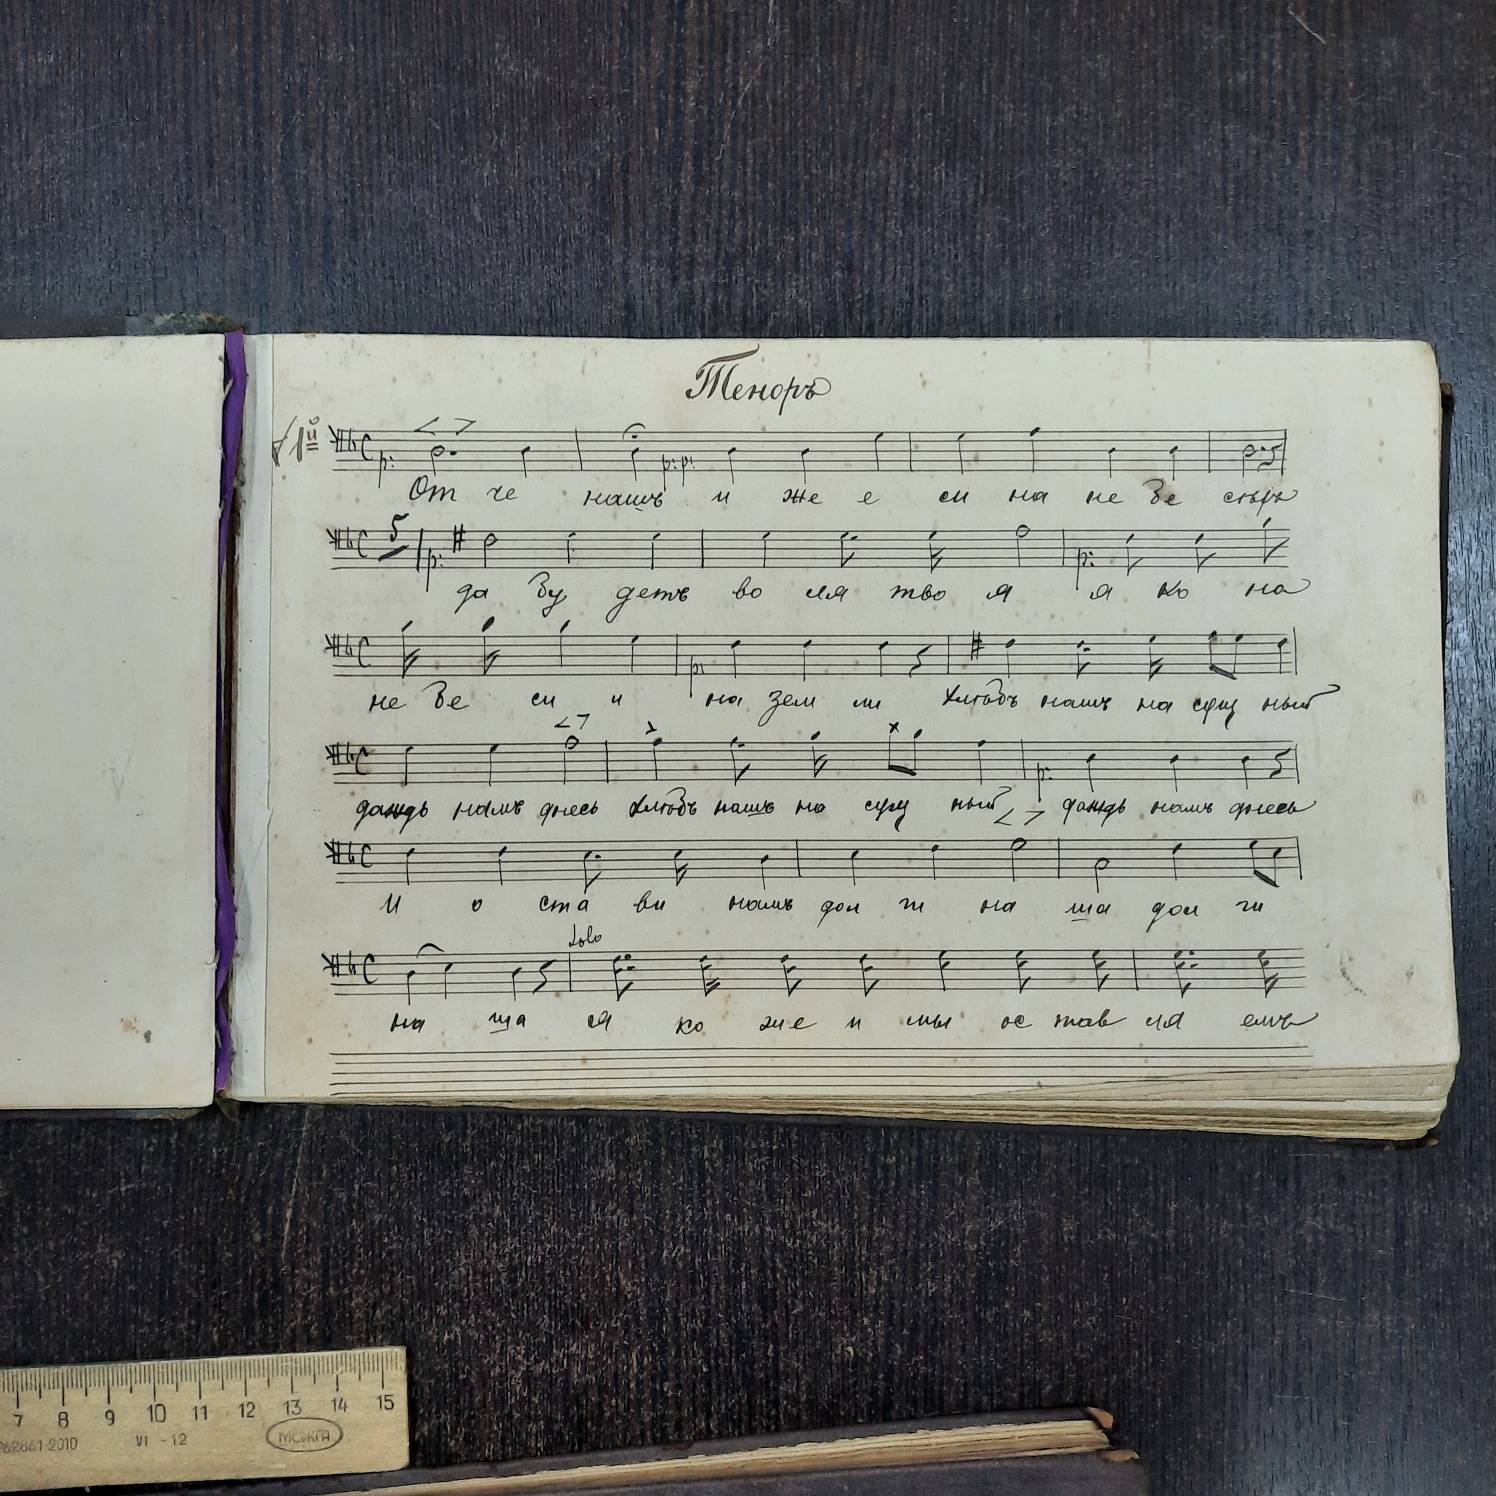 Теноръ
1ый
p: p:p:
От че нашъ и же е си на не бе сѣхъ
5 p: p:
да бу детъ во ля тво я я ко на
p:
не бе си и на зем ли хлѣбъ нашъ на сущ ный
p:
даждь намъ днесь хлѣбъ нашъ на сущ ный даждь намъ днесь
И о ста ви намъ дол ги на ша дол ги
Solo
на ша я ко же и мы ос тав ля емъ
7 8 9 10 11 12 13 14 15
VI - 12